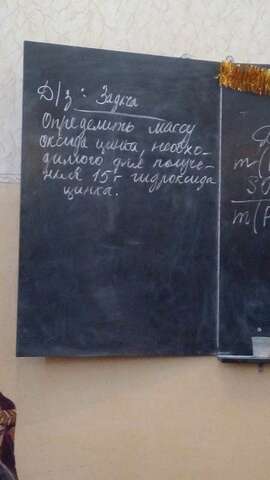 Д/з: Задача
Определить массу
оксида цинка, необхо-
димого для получе-
ния 15г гидроксида
цинка.
m(
m(